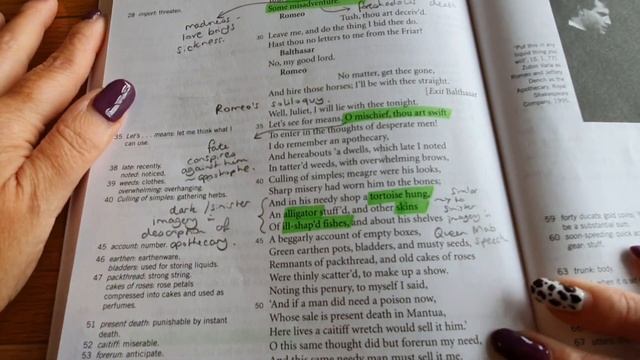 28 import: threaten.
madness -
love brings
sickness.
foreshadows death
Some misadventure.
Romeo
Tush, thou art deceiv'd.
30 Leave me, and do the thing I bid thee do.
Hast thou no letters to me from the Friar?
Balthasar
No, my good lord.
Romeo
No matter, get thee gone,
And hire those horses; I'll be with thee straight.
[Exit Balthasar
Romeo's soliloquy.
Well, Juliet, I will lie with thee tonight.
35 Let's see for means. O mischief, thou art swift
To enter in the thoughts of desperate men!
I do remember an apothecary,
And hereabouts 'a dwells, which late I noted
In tatter'd weeds, with overwhelming brows,
40 Culling of simples; meagre were his looks,
Sharp misery had worn him to the bones;
And in his needy shop a tortoise hung,
An alligator stuff'd, and other skins
Of ill-shap'd fishes, and about his shelves
45 A beggarly account of empty boxes,
Green earthen pots, bladders, and musty seeds,
Remnants of packthread, and old cakes of roses
Were thinly scatter'd, to make up a show.
Noting this penury, to myself I said,
50 'And if a man did need a poison now,
Whose sale is present death in Mantua,
Here lives a caitiff wretch would sell it him.'
O this same thought did but forerun my need,
And this same needy man must sell it me.
35 Let's . . . means: let me think what I
can use.
fate
conspires
against him
- apostrophe.
38 late: recently.
noted: noticed.
39 weeds: clothes.
overwhelming: overhanging.
40 Culling of simples: gathering herbs.
dark/sinister
imagery in
description of
apothecary.
45 account: number.
46 earthen: earthenware.
bladders: used for storing liquids.
47 packthread: strong string.
cakes of roses: rose petals
compressed into cakes and used as
perfumes.
51 present death: punishable by instant
death.
52 caitiff: miserable.
53 forerun: anticipate.
similar
to
sinister
imagery in
Queen Mab
speech
'Put this in any
liquid thing you
will' (5, 1, 77).
Zubin Varla as
Romeo and Jeffery
Dench as the
Apothecary, Royal
Shakespeare
Company, 1995.
59 forty ducats: gold coins,
be a substantial sum.
60 soon-speeding
gear: stuff.
63 trunk: body.